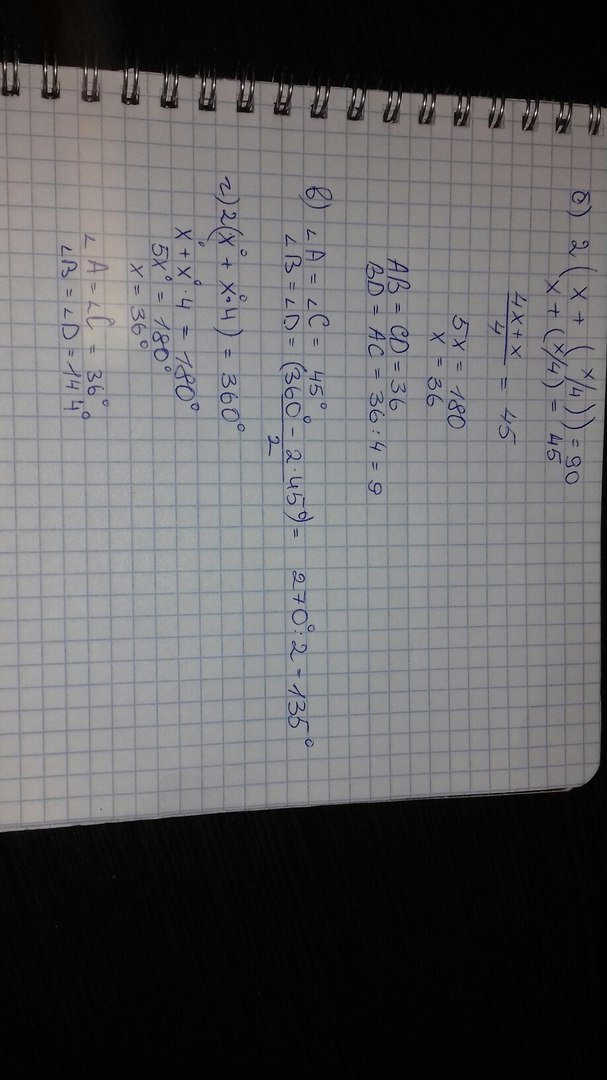 б) 2 (x + (x/4)) = 90
x + (x/4) = 45
4x + x / 4 = 45
5x = 180
x = 36
AB = CD = 36
BD = AC = 36 : 4 = 9
в) ∠A = ∠C = 45°
∠B = ∠D = (360° - 2 · 45°) / 2 = 270° : 2 = 135°
г) 2(x° + x° · 4) = 360°
x° + x° · 4 = 180°
5x° = 180°
x = 36°
∠A = ∠C = 36°
∠B = ∠D = 144°